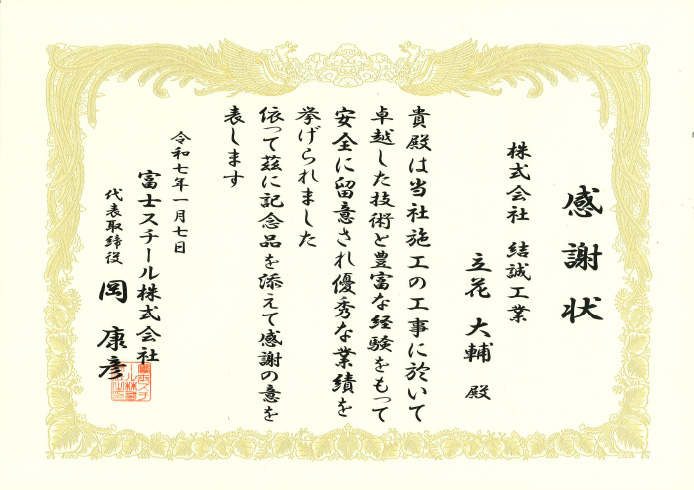 感謝状
株式会社 結誠工業
立花 大輔 殿
貴殿は当社施工の工事に於いて
卓越した技術と豊富な経験をもって
安全に留意され優秀な業績を
挙げられました
依って茲に記念品を添えて感謝の意を
表します
令和七年一月七日
富士スチール株式会社
代表取締役 岡 康彦